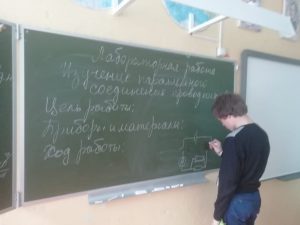 Лабораторная работа
Изучение параллельного
соединения проводников
Цель работы:
Приборы и материалы:
Ход работы: